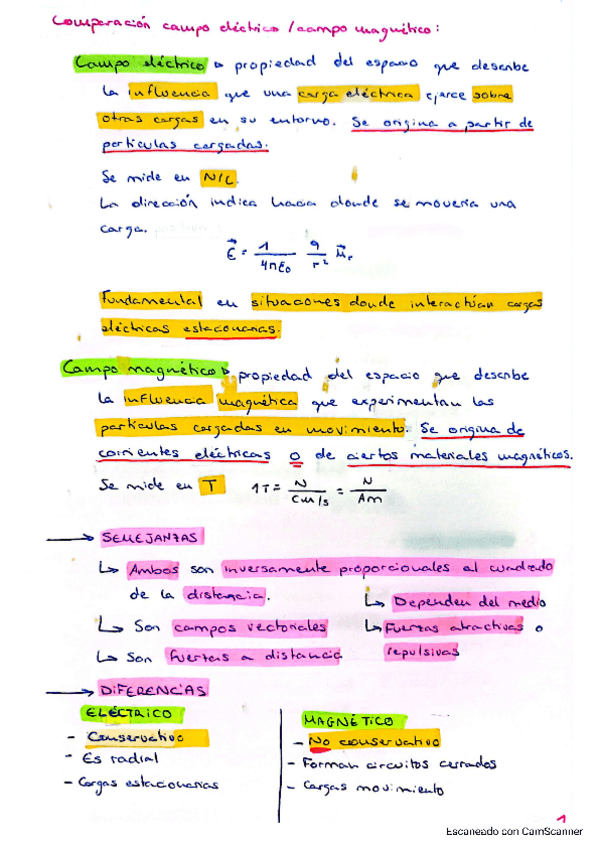 Comparación campo eléctrico / campo magnético:
Campo eléctrico → propiedad del espacio que describe
la influencia que una carga eléctrica ejerce sobre
otras cargas en su entorno. Se origina a partir de
partículas cargadas.
Se mide en N/C.
La dirección indica hacia donde se movería una
carga.
E⃗ = 1/4πε0 q/r² u⃗r
Fundamental en situaciones donde interactúan cargas
eléctricas estacionarias.
Campo magnético → propiedad del espacio que describe
la influencia magnética que experimentan las
partículas cargadas en movimiento. Se origina de
corrientes eléctricas o de ciertos materiales magnéticos.
Se mide en T 1T = N/Cm/s = N/Am
→ SEMEJANZAS
↳ Ambos son inversamente proporcionales al cuadrado
de la distancia.
↳ Dependen del medio
↳ Son campos vectoriales
↳ Fuerzas atractivas o
repulsivas
↳ Son fuerzas a distancia
→ DIFERENCIAS
ELÉCTRICO
- Conservativo
- Es radial
- Cargas estacionarias
MAGNÉTICO
- No conservativo
- Forman circuitos cerrados
- Cargas movimiento
1
Escaneado con CamScanner